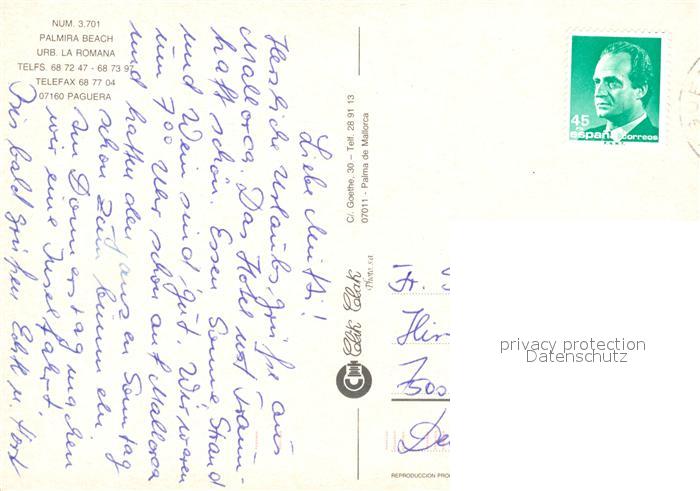 NUM. 3.701
PALMIRA BEACH
URB. LA ROMANA
TELFS. 68 72 47 - 68 73 97
TELEFAX 68 77 04
07160 PAGUERA
Liebe Mutti!
Herzliche Urlaubsgrüße aus
Mallorca. Das Hotel ist traum-
haft schön. Essen Sonne Strand
und Wein sind gut. Wir waren
um 7⁰⁰ Uhr schon auf Mallorca
und hatten den ganzen Sonntag
schon zum
Am Donnerstag machen
wir eine Inselfahrt.
Bis bald grüßen u. Horst
C/. Goethe, 30 – Telf. 28 91 13
07011 - Palma de Mallorca
Clak Clak
Photo, s.a.
45
españa correos
F.N.M.T.
Fr.
privacy protection
Datenschutz
REPRODUCCION PRO